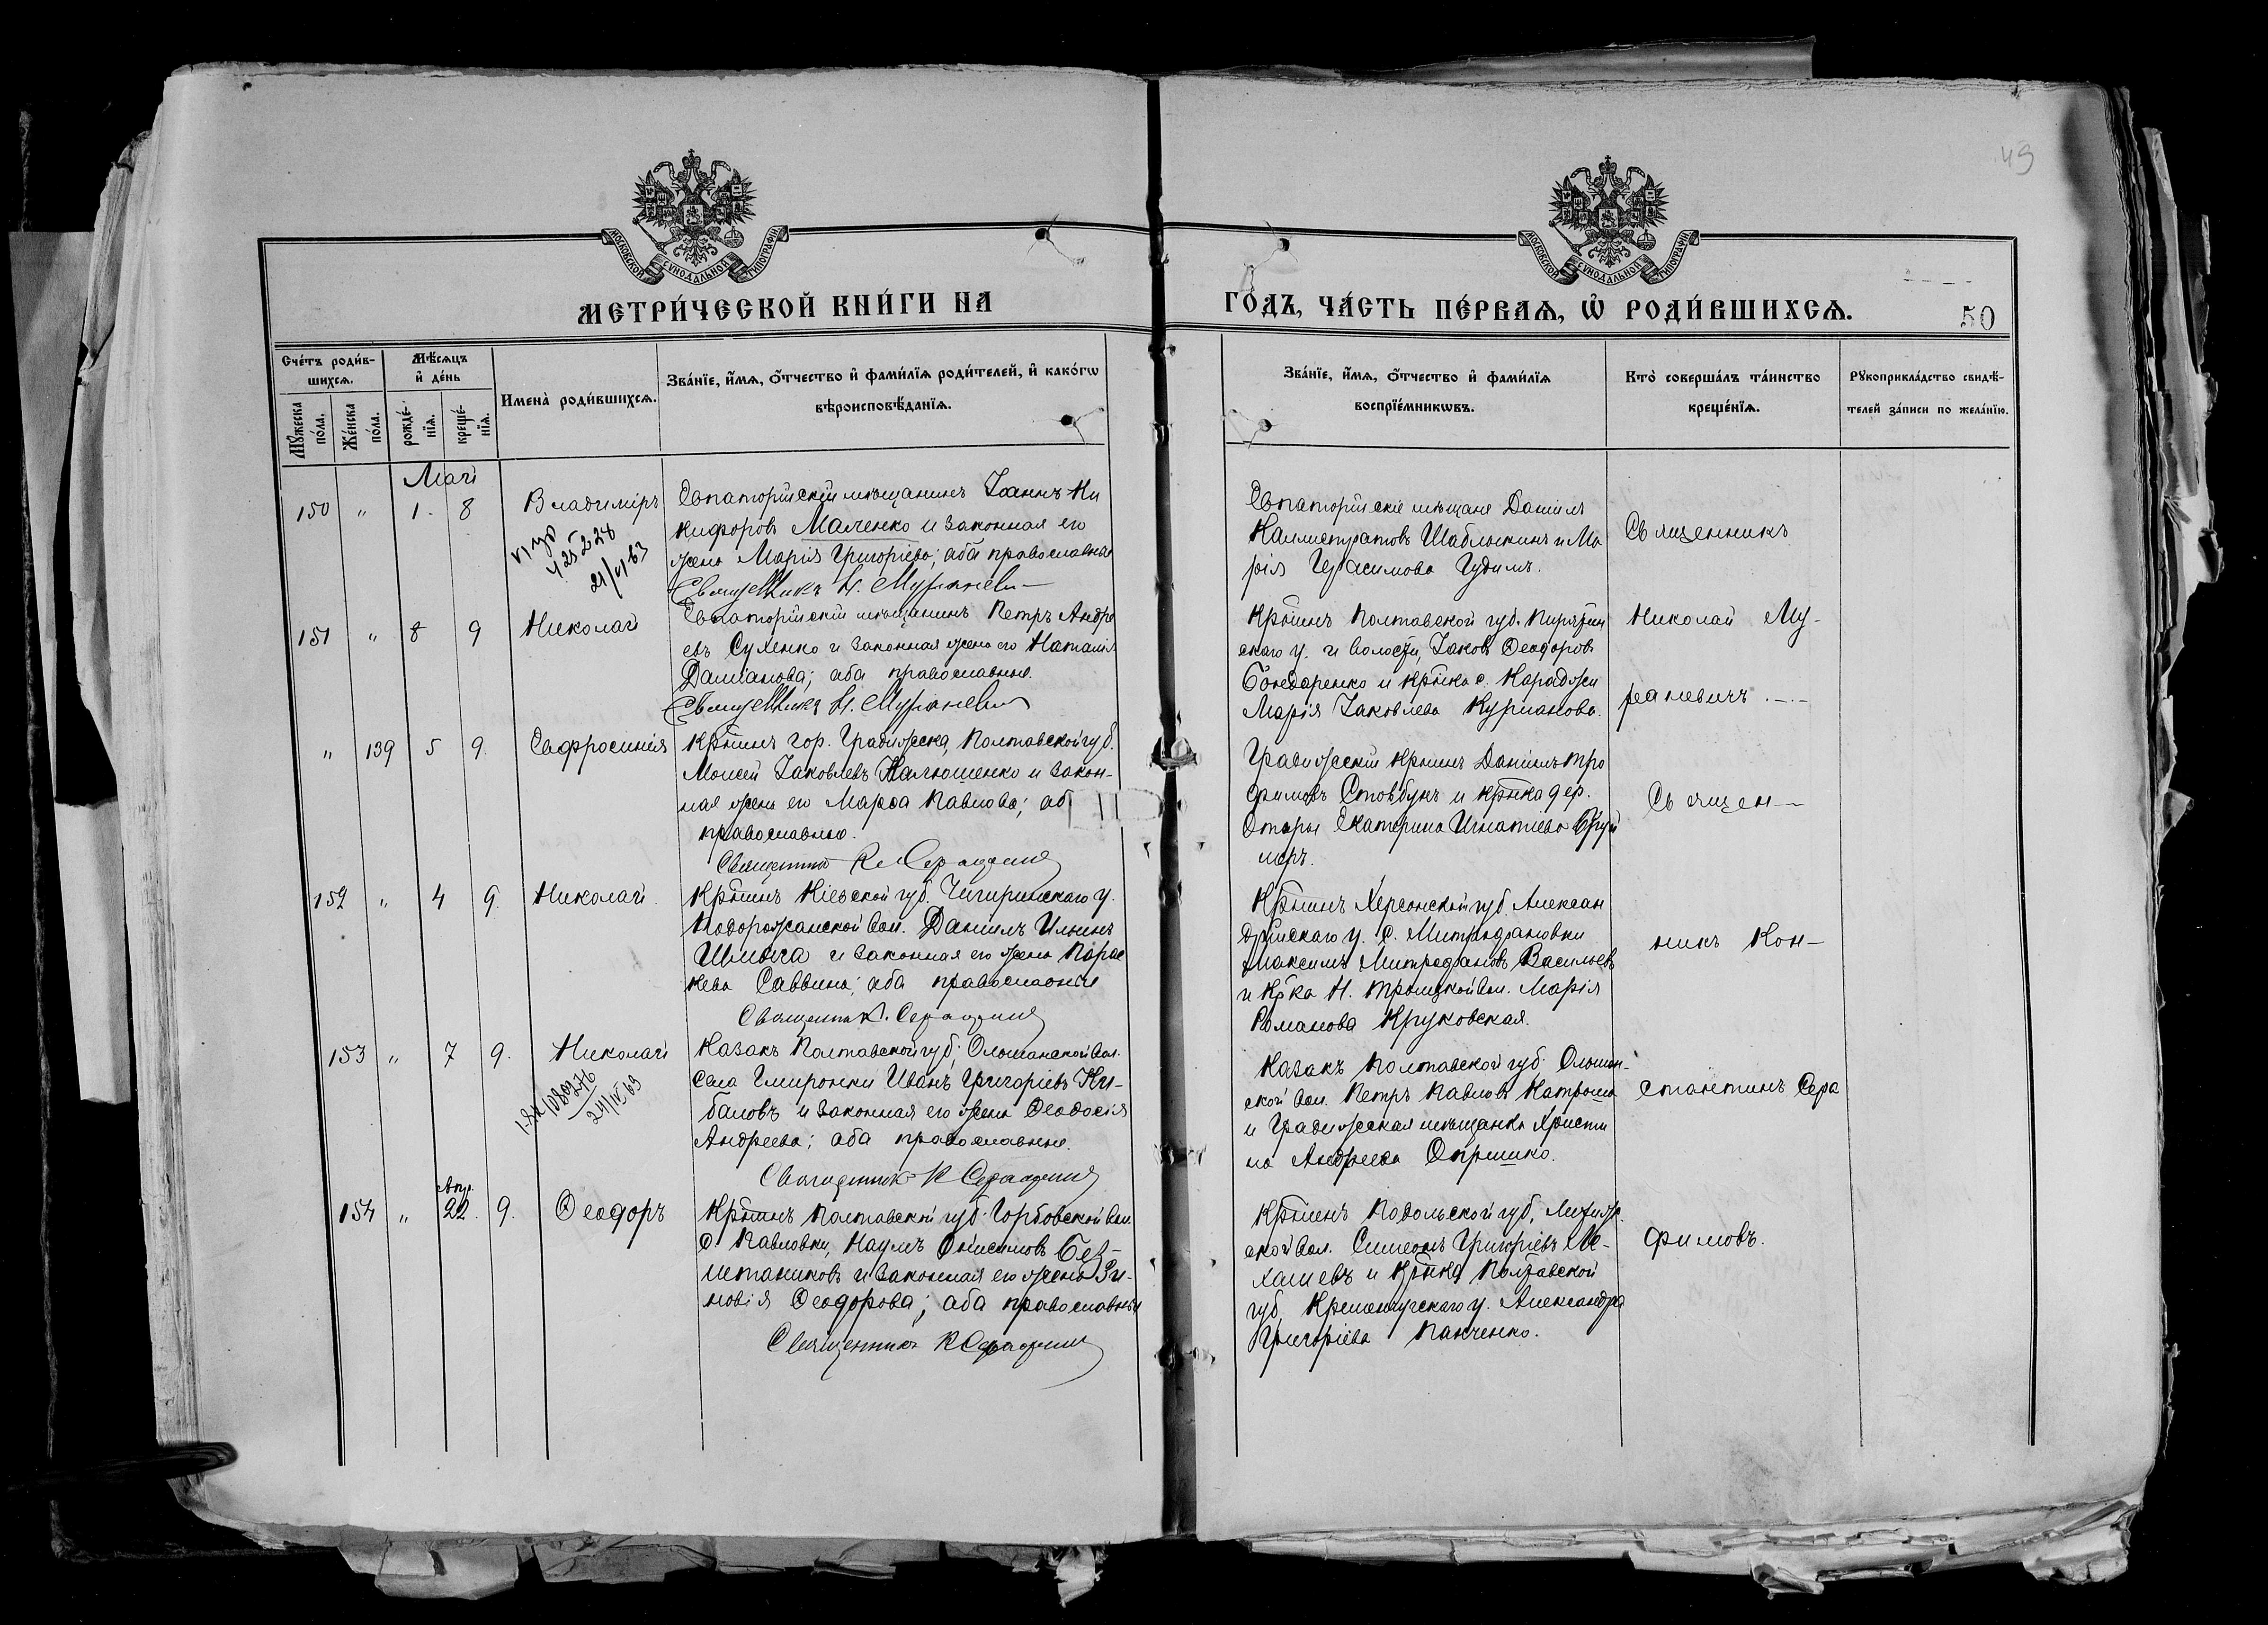 49
МОСКОВСКОЙ СѴНОДАЛЬНОЙ ТИПОГРАФІИ
МОСКОВСКОЙ СѴНОДАЛЬНОЙ ТИПОГРАФІИ
МЕТРИ́ЧЕСКОЙ КНИ́ГИ НА
ГО́ДЪ, ЧА́СТЬ ПЕ́РВАѦ, Ѡ҆ РОДИ́ВШИХСѦ.
50
Счéтъ роди́в-
шихсѧ.
Мѣ́сѧцъ
и҆ де́нь
Мꙋ́жеска
по́ла.
Же́нска
по́ла.
рожде́-
нїѧ.
креще́-
нїѧ.
Имена̀ роди́вшихсѧ.
Зва́нїе, и҆́мѧ, ѻ҆́тчество и҆ фами́лїѧ роди́телей, и҆ како́гѡ
вѣроисповѣ́данїѧ.
Зва́нїе, и҆́мѧ, ѻ҆́тчество и҆ фами́лїѧ
воспрїе́мникѡвъ.
Кто̀ соверша́лъ та́инство
креще́нїѧ.
Рꙋкоприкла́дство свидѣ́-
телей за́писи по жела́нїю.
Май
150 " 1. 8 Владиміръ
21/VI 63
Евпаторійскій мѣщанинъ Іоаннъ Ни
кифоровъ Маленко и законная его
жена Марія Григоріева; оба православные
Священникъ Н. Мураневич
Евпаторійскіе мѣщане Даніилъ
Каллистратовъ Шаблыкинъ и Ма
рія Герасимова Гудимъ.
Священникъ
151 " 8 9 Николай
Евпаторійскій мѣщанинъ Петръ Андре
евъ Сухенко и законная жена его Наталія
Даміанова; оба православные.
Священникъ Н. Мураневич
Кр̃нинъ Полтавской губ. Пирятин
скаго у. и волости, Іаковъ Ѳеодоровъ
Бондаренко и кр̃нка с. Караджи
Марія Іаковлева Курманова.
Николай Му-
раневичъ.—.—
" 139 5 9. Евфросинія
Кр̃нинъ гор. Градижска, Полтавской губ.
Моисей Іаковлевъ Калюшенко и закон-
ная жена его Марѳа Павлова; об
православные.
Священник К Серафимов
Градижскій кр̃нинъ Даніилъ Тро
фимовъ Стовбунъ и кр̃нка дер.
Отары Екатерина Игнатіева Бруй
меръ.
Священ—
152 " 4 9. Николай
Кр̃нинъ Кіевской губ. Чигиринскаго у.
Подорожанской вол. Даніилъ Ильинъ
Шмыга и законная его жена Парас
кева Саввина; оба православные
Священник К. Серафимов
Кр̃нинъ Херсонской губ. Алексан
дрійскаго у. с. Митрофановки
Максимъ Митрофановъ Васильевъ
и кр̃ка Н. Троицкой вол. Марія
Романова Круковская.
никъ Кон—
153 " 7 9. Николай
24/IV 63
Казакъ Полтавской губ; Ольшанской вол.
села Гмиронки Иванъ Григоріевъ Ки-
баловъ и законная его жена Ѳеодосія
Андреева; оба православные.
Священник К Серафимов
Казакъ Полтавской губ; Ольшан-
ской вол. Петръ Павловъ Катроша
и Градижская мѣщанка Христи
на Андреева Опришко.
стантинъ Сера
154 " Апр. 22. 9. Ѳеодоръ
Кр̃нинъ Полтавской губ. Горбовской вол.
с. Павловки, Наумъ Онисимовъ Без-
штаниковъ и законная его жена Зи-
новія Ѳеодорова; оба православные
Священник К Серафимов
Кр̃нинъ Подольской губ,
ской вол. Симеонъ Григоріевъ Ме-
халевъ и кр̃нка Полтавской
губ, Кременчугскаго у. Александра
Григоріева Панченко.
фимовъ.